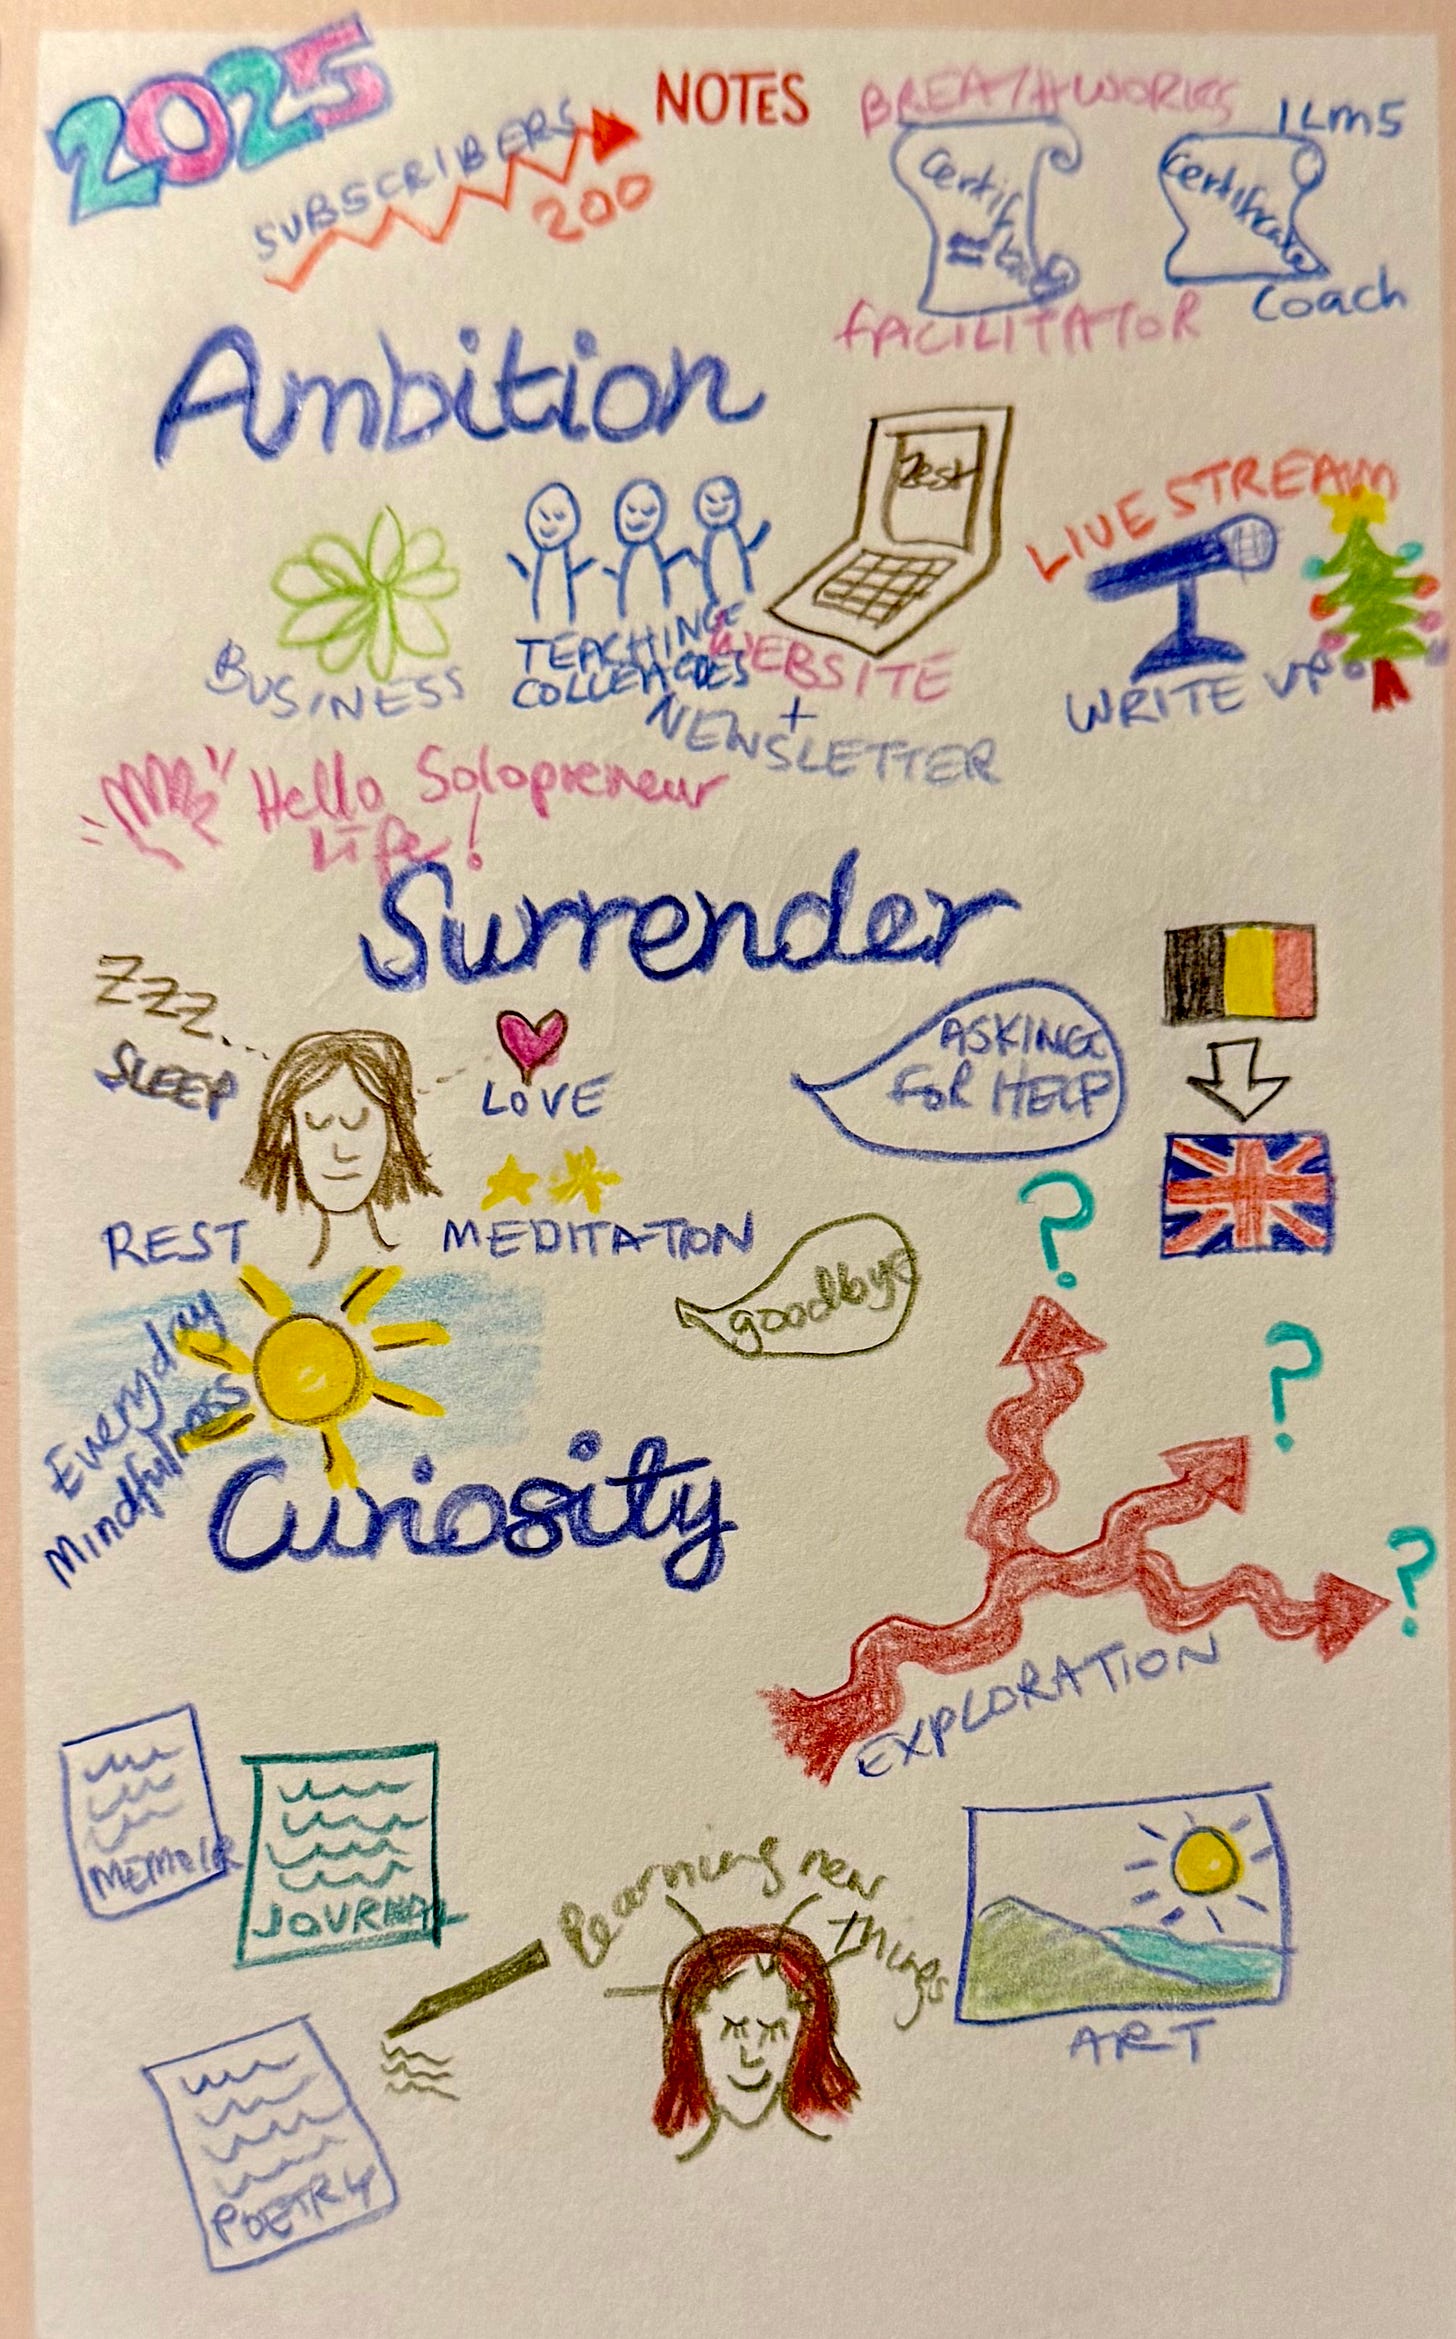 2025
SUBSCRIBERS
200
NOTES
BREATHWORKS
Certificate
FACILITATOR
ILM5
Certificate
Coach
Ambition
BUSINESS
TEACHING
COLLEAGUES
Zest
WEBSITE
+
NEWSLETTER
LIVE STREAM
WRITE UP
Hello Solopreneur
Life!
Surrender
ZZZ...
SLEEP
LOVE
REST
MEDITATION
ASKING
FOR HELP
goodbye
Everyday
Mindfulness
Curiosity
?
?
?
EXPLORATION
MEMOIR
JOURNAL
Learning new
things
ART
POETRY